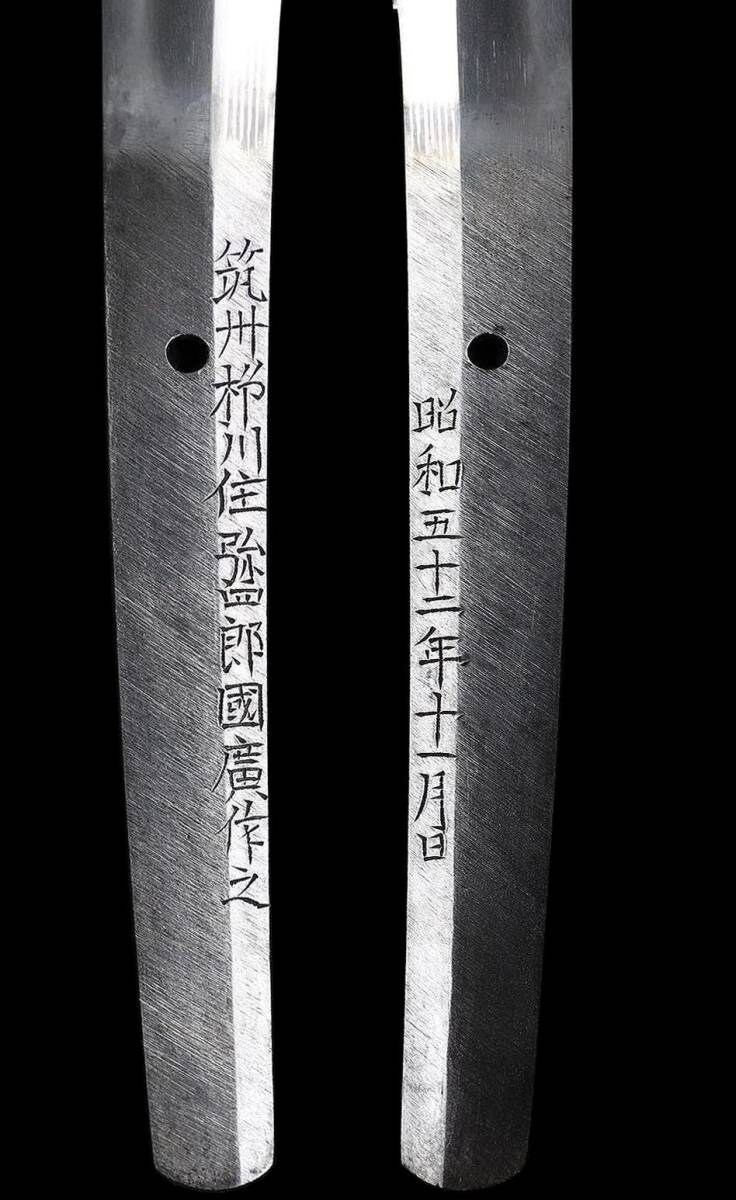 筑州柳川住弥四郎國廣作之
昭和五十二年十一月日